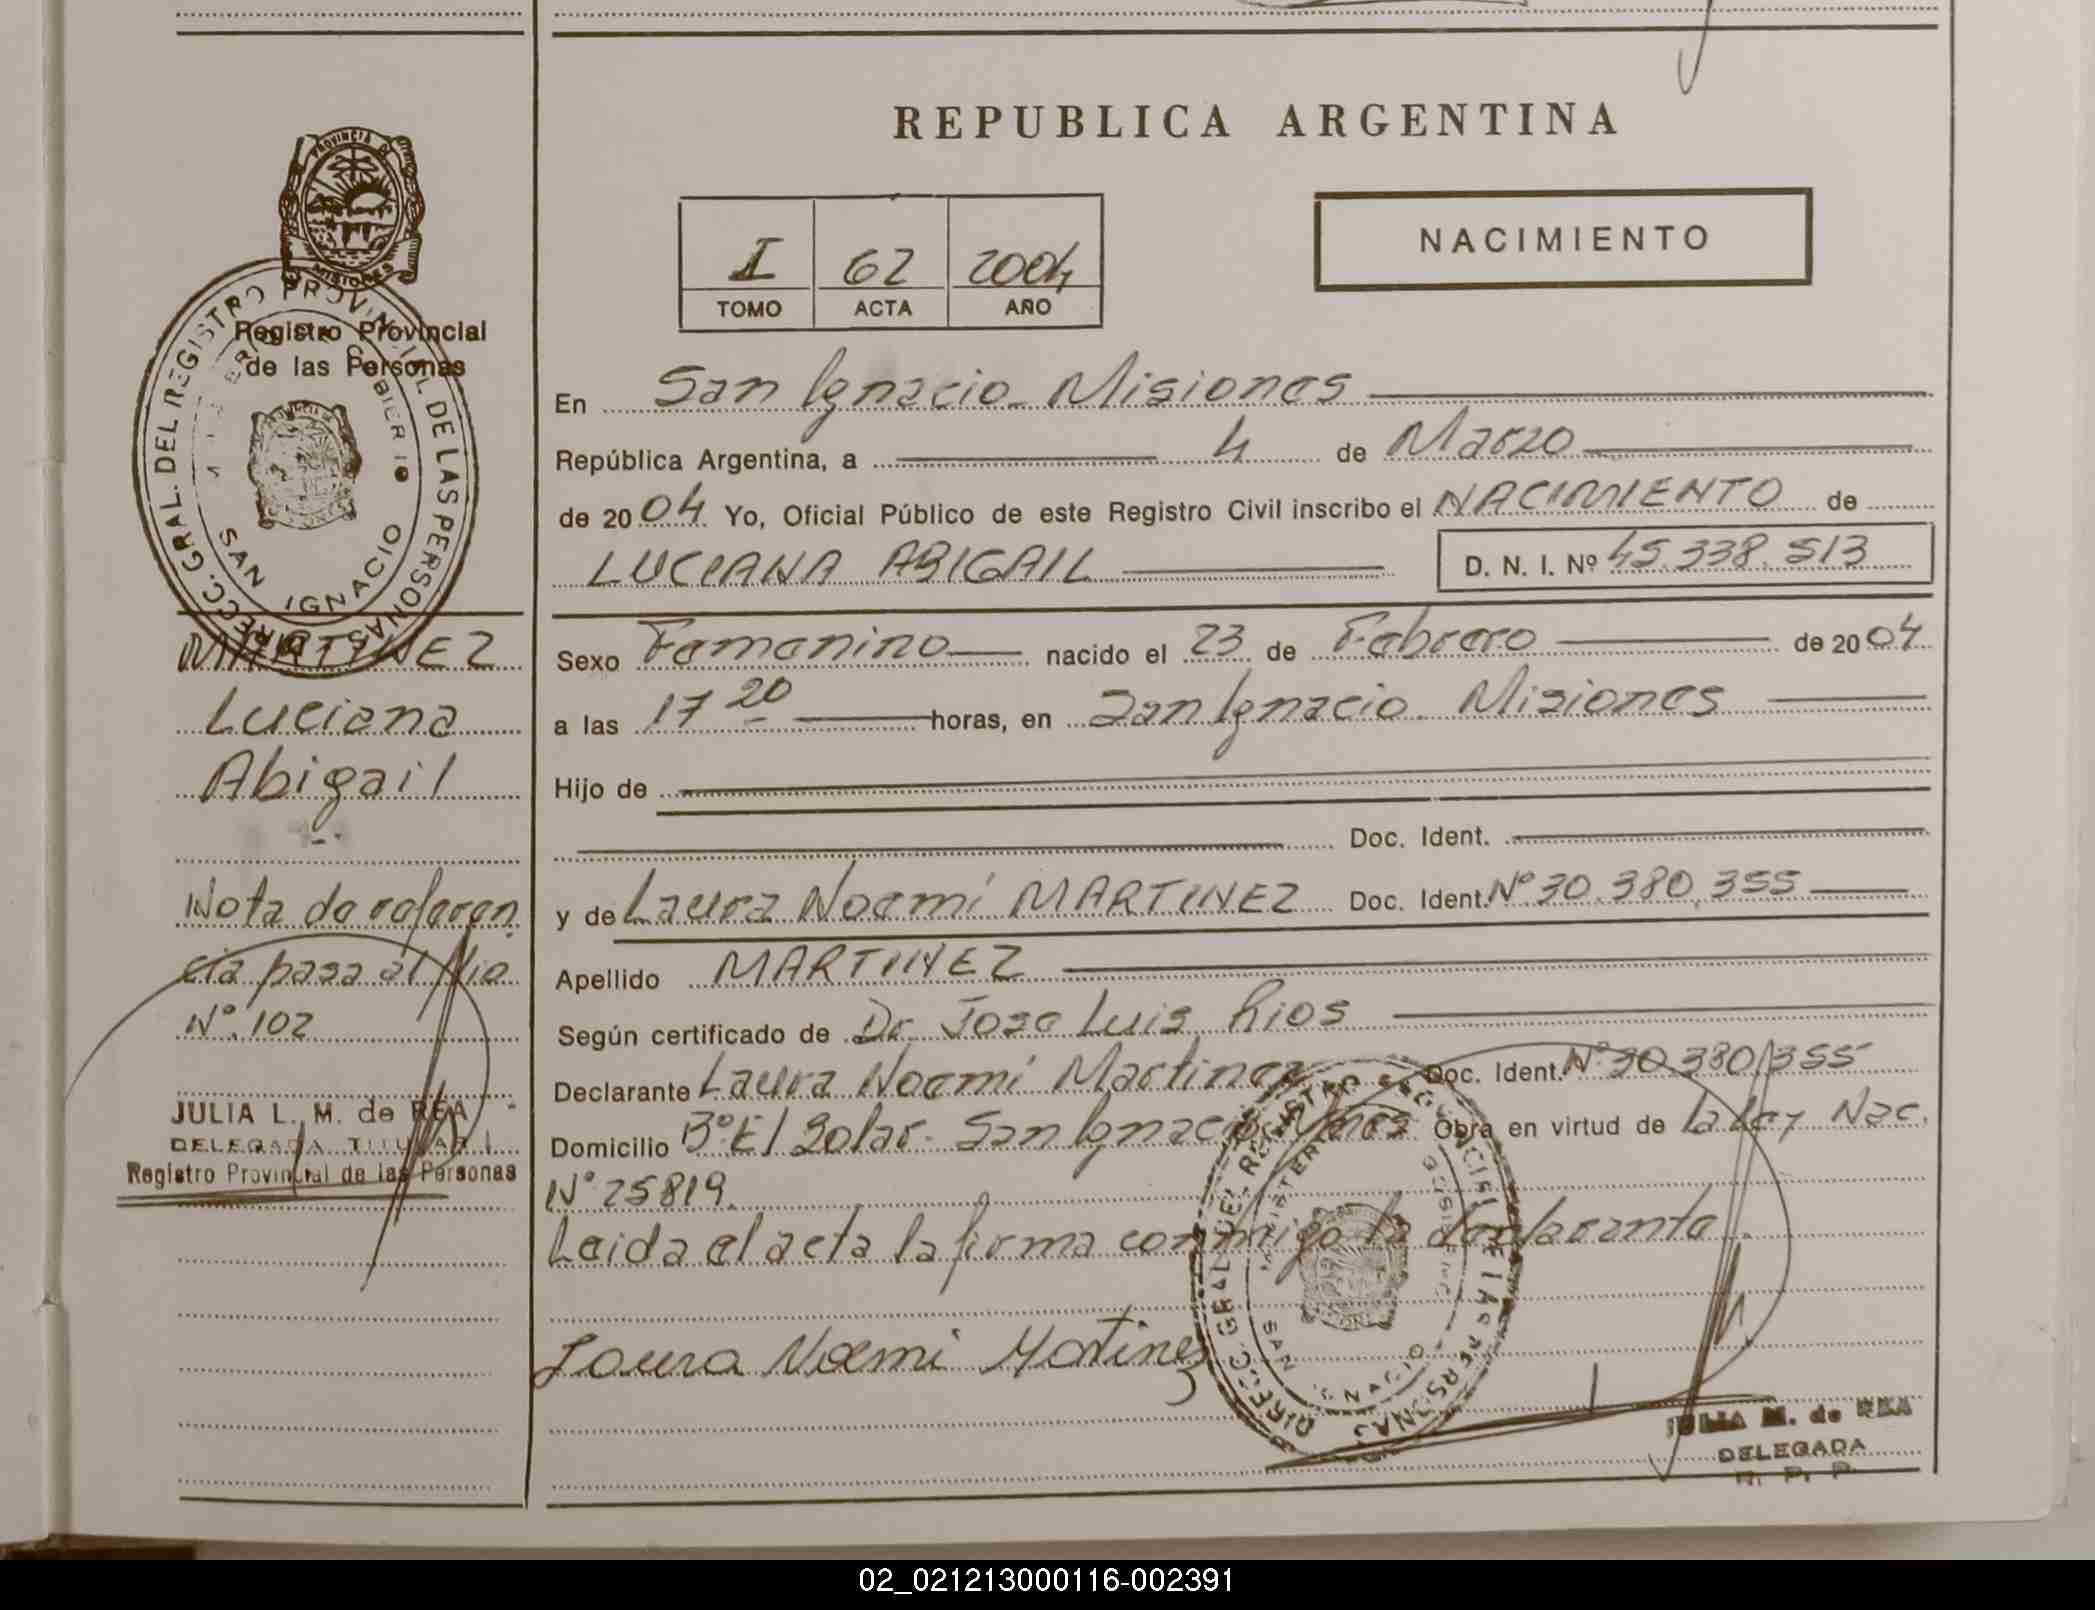 REPUBLICA ARGENTINA
NACIMIENTO
I 62 2004
TOMO ACTA AÑO
PROVINCIA DE MISIONES
Registro Provincial
de las Personas
DIRECC. GRAL. DEL REGISTRO PROVINCIAL DE LAS PERSONAS
SAN IGNACIO
MARTINEZ
Luciana
Abigail
Nota de referen
cia pasa al folio
Nº 102
JULIA L. M. de REA
DELEGADA TITULAR
Registro Provincial de las Personas
En San Ignacio Misiones
República Argentina, a 4 de Marzo
de 2004 Yo, Oficial Público de este Registro Civil inscribo el NACIMIENTO de
LUCIANA ABIGAIL D. N. I. Nº 45.338.513
Sexo Femenino nacido el 23 de Febrero de 2004
a las 17 20 horas, en San Ignacio Misiones
Hijo de
Doc. Ident.
y de Laura Noemí MARTINEZ Doc. Ident. Nº 30.380.355
Apellido MARTINEZ
Según certificado de Dr Jose Luis Rios
Declarante Laura Noemí Martinez Doc. Ident. Nº 30.380.355
Domicilio Bº El Solar. San Ignacio Mnes Obra en virtud de la ley Nac.
Nº 25819.
Leida el acta la firma conmigo la declarante.
Laura Noemi Martinez
DIRECC. GRAL. DEL REGISTRO
SAN IGNACIO
JULIA M. de REA
DELEGADA
R. P. P.
02_021213000116-002391